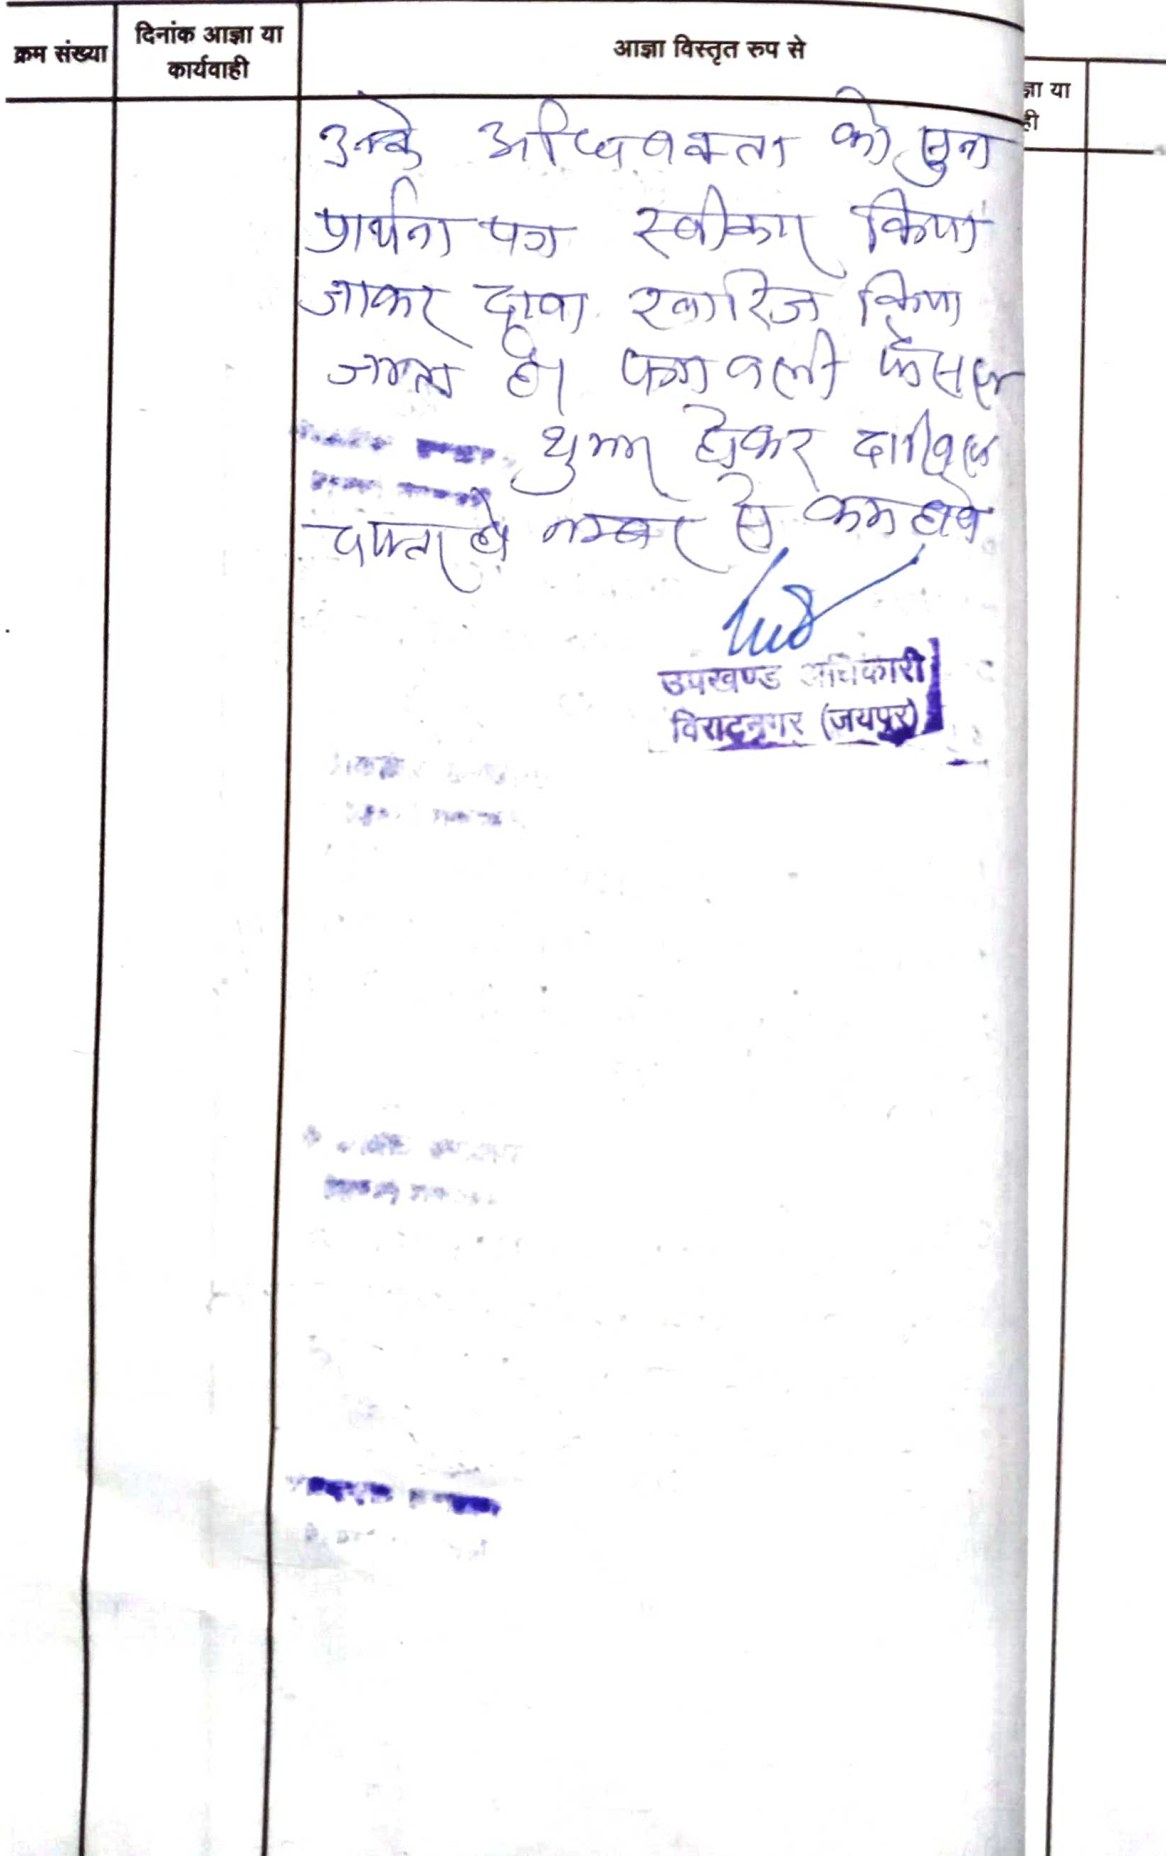 क्रम संख्या
दिनांक आज्ञा या
कार्यवाही
आज्ञा विस्तृत रुप से
ज्ञा या
ही
उनके अधिवक्ता को सुना
प्रार्थना पत्र स्वीकार किया
जाकर दावा खारिज किया
जाता है। पत्रावली फैसल
शुमार होकर दाखिल
दफ्तर हो नम्बर से कम होवे
उपखण्ड अधिकारी
विराटनगर (जयपुर)